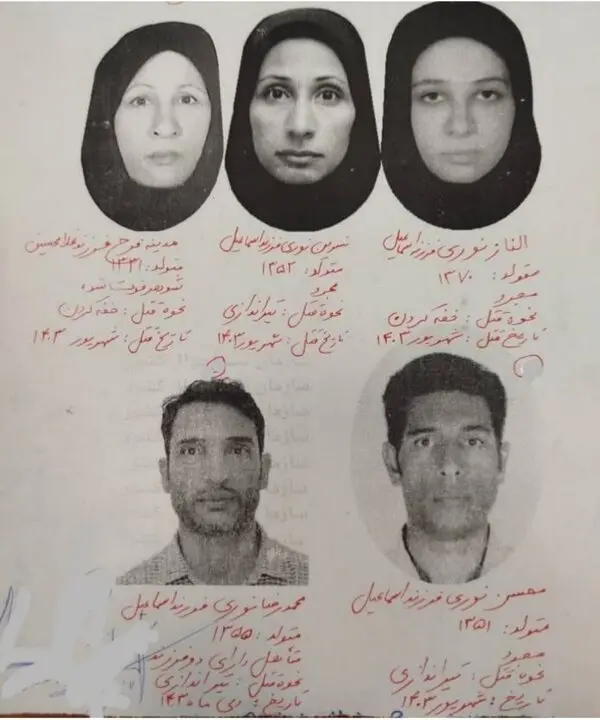 الناز نوری فرزند اسماعیل
متولد: ۱۳۷۰
مجرد
نحوه قتل: خفه کردن
تاریخ قتل: شهریور ۱۴۰۳
نسرین نوری فرزند اسماعیل
متولد: ۱۳۵۲
مجرد
نحوه قتل: تیراندازی
تاریخ قتل: شهریور ۱۴۰۳
مدینه فرزند غلامحسین
متولد: ۱۳۳۱
شوهر فوت شده
نحوه قتل: خفه کردن
تاریخ قتل: شهریور ۱۴۰۳
محسن نوری فرزند اسماعیل
متولد: ۱۳۵۱
مجرد
نحوه قتل: تیراندازی
تاریخ: شهریور ۱۴۰۳
محمدرضا نوری فرزند اسماعیل
متولد: ۱۳۵۵
متأهل دارای دو فرزند
نحوه قتل: تیراندازی
تاریخ: دی ماه ۱۴۰۳